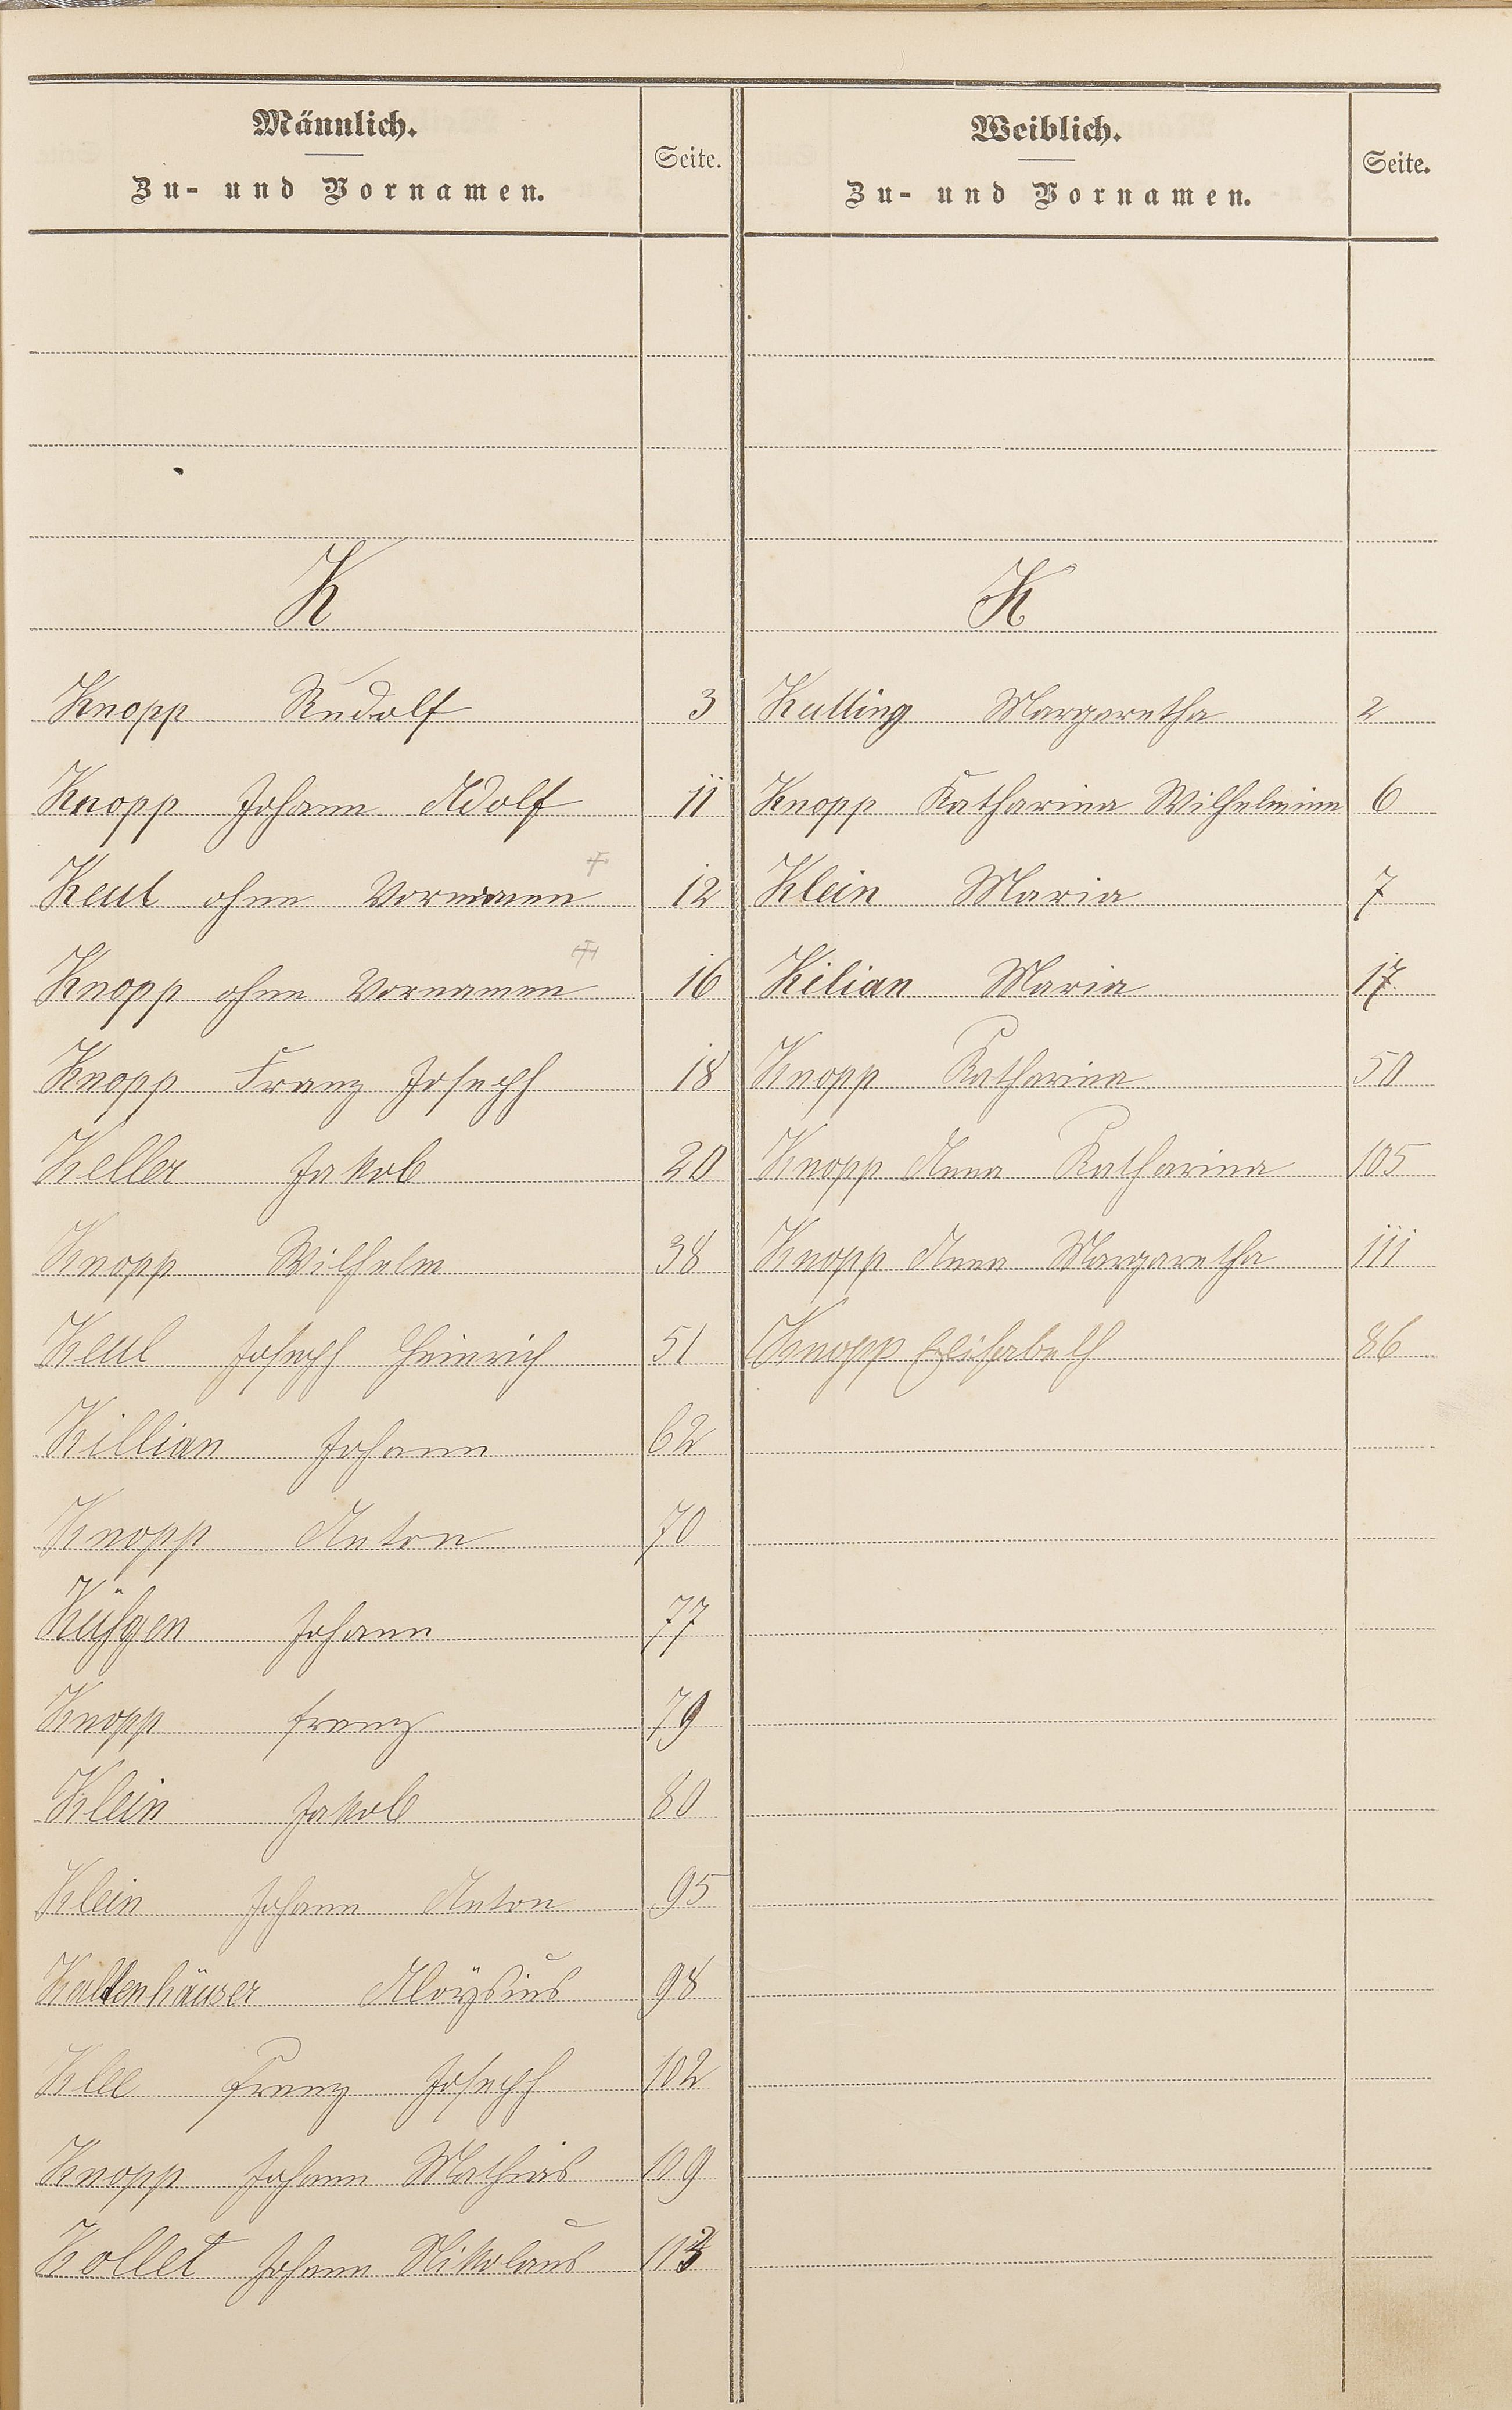 Männlich.
Zu- und Vornamen.
Seite.
K
Knopp Rudolf 3
Knopp Johann Adolf 11
Keul ohne Vornamen 12
Knopp ohne Vornamen 16
Knopp Franz Joseph 18
Keller Jakob 20
Knopp Wilhelm 38
Keul Joseph Heinrich 51
Killian Johann 62
Knopp Anton 70
Johann 77
Knopp Franz 79
Klein Jakob 80
Klein Johann Anton 95
Kaltenhäuser Aloÿsius 98
Klee Franz Joseph 102
Knopp Johann Mathias 109
Kollet Johann Nikolaus 113
Weiblich.
Zu- und Vornamen.
Seite.
K
Margaretha 2
Knopp Katharina Wilhelmine 6
Klein Maria 7
Kilian Maria 17
Knopp Katharina 50
Knopp Anna Katharina 105
Knopp Anna Margaretha 111
Knopp Elisabeth 86